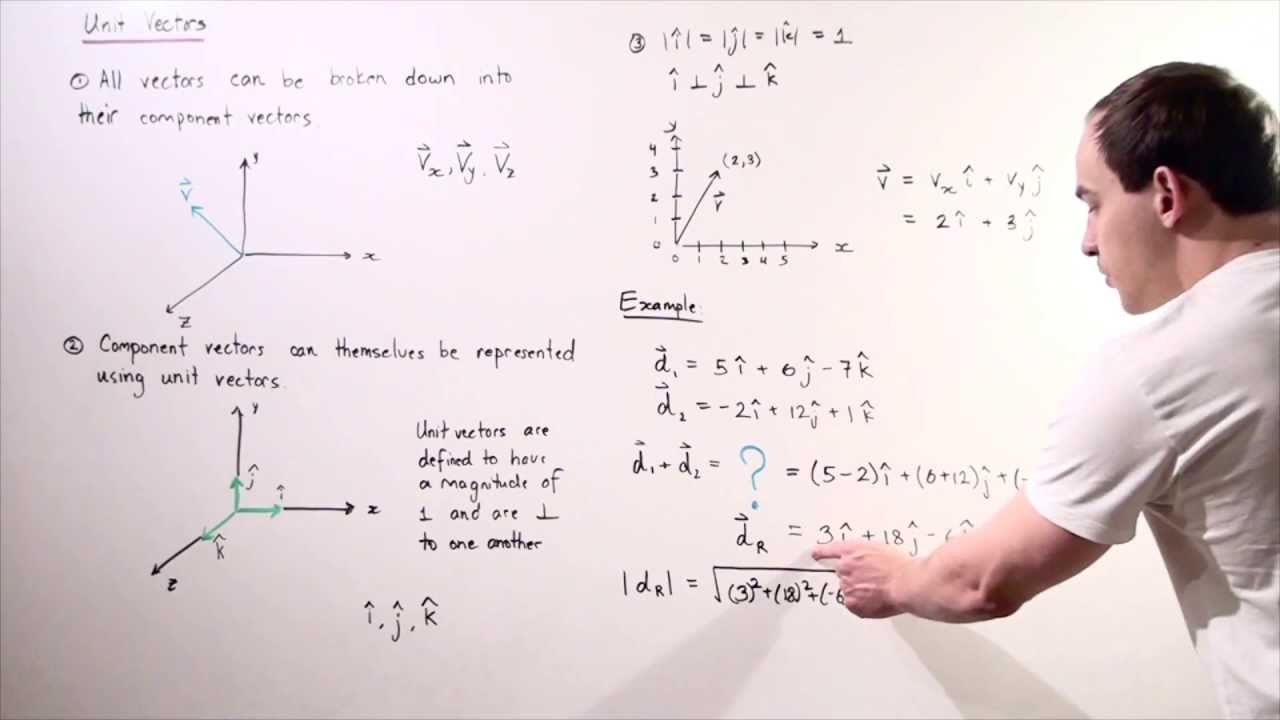 Unit Vectors
① All vectors can be broken down into
their component vectors.
V⃗x, V⃗y, V⃗z
y
V⃗
x
z
② Component vectors can themselves be represented
using unit vectors.
y
ĵ
î
x
k̂
z
Unit vectors are
defined to have
a magnitude of
1 and are ⊥
to one another
î, ĵ, k̂
③ |î| = |ĵ| = |k̂| = 1
î ⊥ ĵ ⊥ k̂
y
4
3
2
1
0
(2,3)
V⃗
0 1 2 3 4 5
x
V⃗ = Vx î + Vy ĵ
= 2î + 3ĵ
Example:
d⃗₁ = 5î + 6ĵ - 7k̂
d⃗₂ = -2î + 12ĵ + 1k̂
d⃗₁ + d⃗₂ = ? = (5-2)î + (6+12)ĵ + (-
d⃗R = 3î + 18ĵ -
|dR| = √(3)² + (18)² + (-6